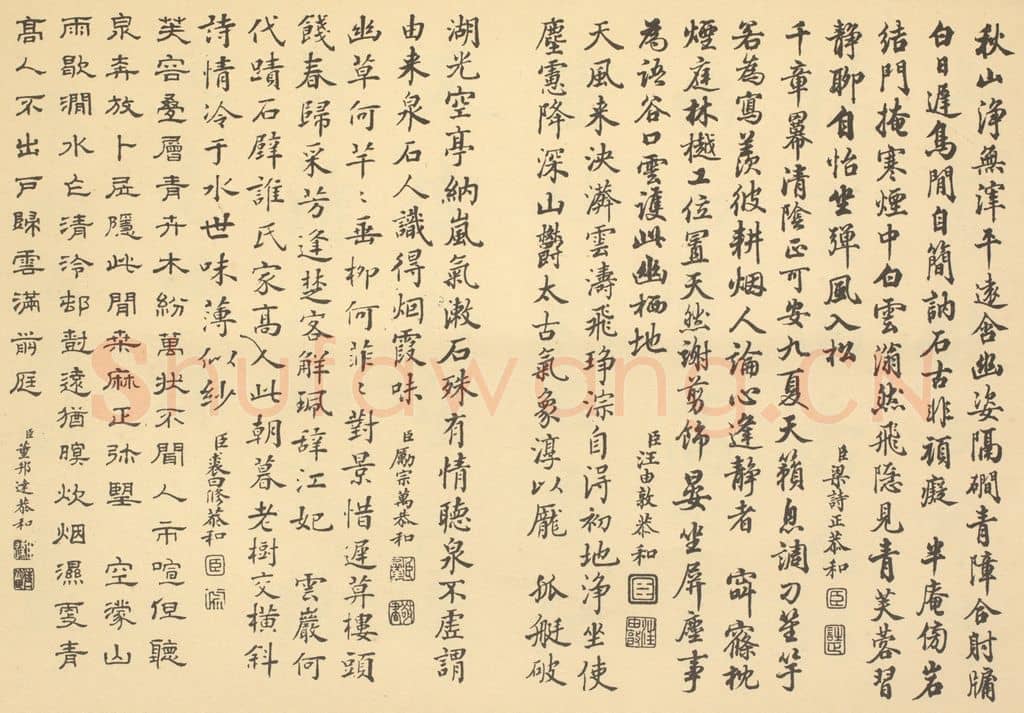 秋山淨無滓平遠含幽姿隔磵青障合射牖
白日遲鳥閒自簡訥石古非頑癡 半庵傍岩
結門掩寒煙中白雲滃然飛隱見青芙蓉習
靜聊自怡坐彈風入松 臣梁詩正恭和
千章羃清陰正可安九夏天籟息調刁笙竽
若為寫羨彼耕烟人論心逢靜者 窣窱枕
煙庭林樾工位置天然謝剪飾晏坐屏塵事
為語谷口雲護此幽栖地 臣汪由敦恭和
天風来泱漭雲濤飛琤淙自得初地淨坐使
塵慮降深山鬱太古氣象淳以厖 孤艇破
湖光空亭納嵐氣漱石殊有情聽泉不虛謂
由来泉石人識得烟霞味 臣勵宗萬恭和
幽草何芊〻垂柳何菲〻對景惜遲草樓頭
餞春歸采芳逢楚客解珮辞江妃 雲巖何
代蹟石壁誰氏家高人此朝暮老樹交橫斜
詩情冷于水世味薄似紗 臣裘曰修恭和
芙容疊層青卉木紛萬狀不聞人市喧但聽
泉奔放卜居隱此間桑麻正弥望 空濛山
雨歇澗水亡清泠邨對遠猶暝炊烟濕更青
高人不出戶歸雲滿前庭 臣董邦達恭和
Shufawang.CN